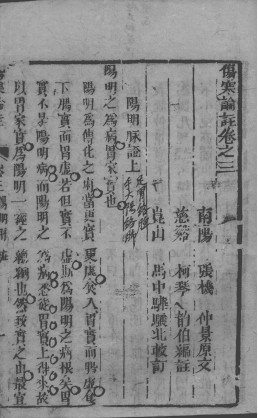 傷寒論註卷之三
南陽 張機 仲景原文
慈谿 柯琴 韵伯編註
崑山 馬中驊驤北較訂
陽明脉證上
陽明之為病胃家實也
陽明為傳化之府當更實更虛食入胃實而腸虛食
下腸實而胃虛若但實不虛斯為陽明之病根矣胃
實不是陽明病而陽明之為病悉從胃實上得來故
以胃家實為陽明一經之總綱也然致實之由最宜